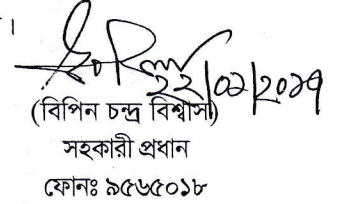 ২২/০১/২০১৭
(বিপিন চন্দ্র বিশ্বাস)
সহকারী প্রধান
ফোনঃ ৯৫৬৫০১৮